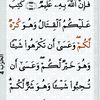 فَإِنَّ ٱللَّهَ بِهِۦ عَلِيمٌ كُتِبَ
عَلَيْكُمُ ٱلْقِتَالُ وَهُوَ كُرْهٌ
لَّكُمْ وَعَسَىٰٓ أَن تَكْرَهُوا۟ شَيْـًٔا
وَهُوَ خَيْرٌ لَّكُمْ وَعَسَىٰٓ أَن
تُحِبُّوا۟ شَيْـًٔا وَهُوَ شَرٌّ لَّكُمْ